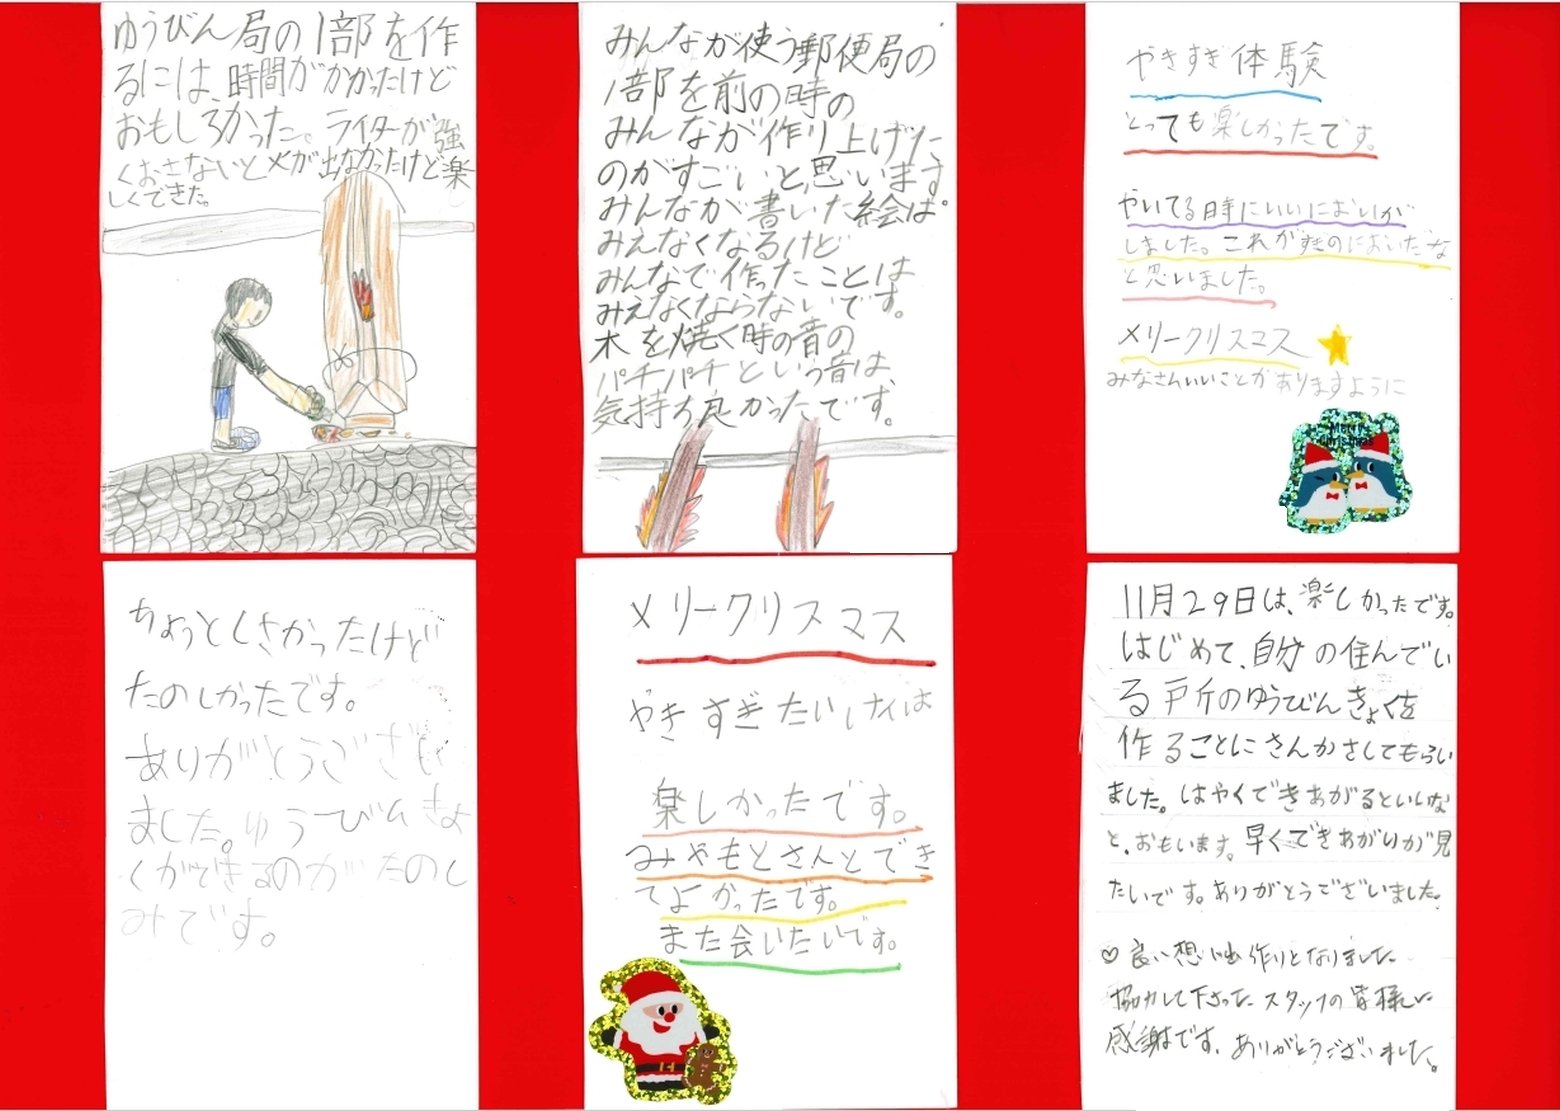 ゆうびん局の1部を作
るには、時間がかかったけど
おもしろかった。ライターが強
くおさないと火が出なかったけど楽
しくできた。
みんなが使う郵便局の
1部を前の時の
みんなが作り上げた
のがすごいと思います。
みんなが書いた絵は
みえなくなるけど
みんなで作ったことは
みえなくならないです。
木を焼く時の音の
パチパチという音は、
気持ち良かったです。
やきすぎ体験
とっても楽しかったです。
やいてる時にいいにおいが
しました。これがすぎのにおいだな
と思いました。
メリークリスマス
みなさんいいことがありますように
Merry
Christmas
ちょっとくさかったけど
たのしかったです。
ありがとうござい
ました。ゆうびんきょ
くができるのがたのし
みです。
メリークリスマス
やきすぎたいけんは
楽しかったです。
みやもとさんとでき
てよかったです。
また会いたいです。
11月29日は、楽しかったです。
はじめて、自分の住んでい
る戸斤のゆうびんきょくを
作ることにさんかさしてもらい
ました。はやくできあがるといいな
と、おもいます。早くできあがりが見
たいです。ありがとうございました。
♡良い想い出作りとなりました
協力して下さったスタッフの皆様に
感謝です。ありがとうございました。